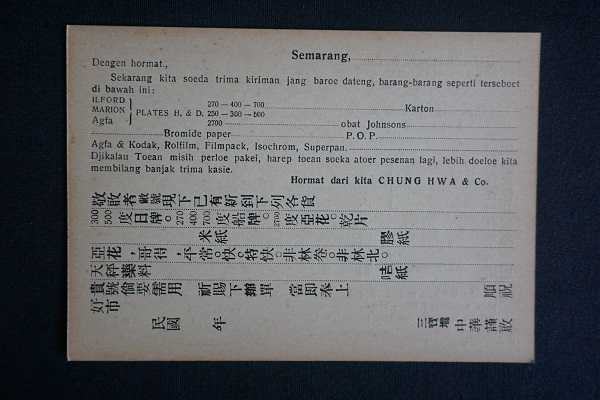 Semarang,
Dengen hormat.,
Sekarang kita soeda trima kiriman jang baroe dateng, barang-barang seperti terseboet
di bawah ini:
ILFORD
MARION PLATES H. & D.
Agfa
270 — 400 — 700
250 — 300 — 500
2700
Karton
obat Johnsons
Bromide paper P.O.P.
Agfa & Kodak, Rolfilm, Filmpack, Isochrom, Superpan.
Djikalau Toean misih perloe pakei, harep toean soeka atoer pesenan lagi, lebih doeloe kita
membilang banjak trima kasie.
Hormat dari kita CHUNG HWA & Co.
敬啟者敝號現下已有新到下列各貨
300 500 度日牌。270 400 700 度船牌。2700 度亞花。乾片
米紙 膠紙
亞花,哥得,平常。快。特快。非林卷。非林北。
天秤藥料 咭紙
貴號倘要需用 祈賜下辦單 當即奉上 順祝
好市
民國 年 三寶壟 中華謹啟